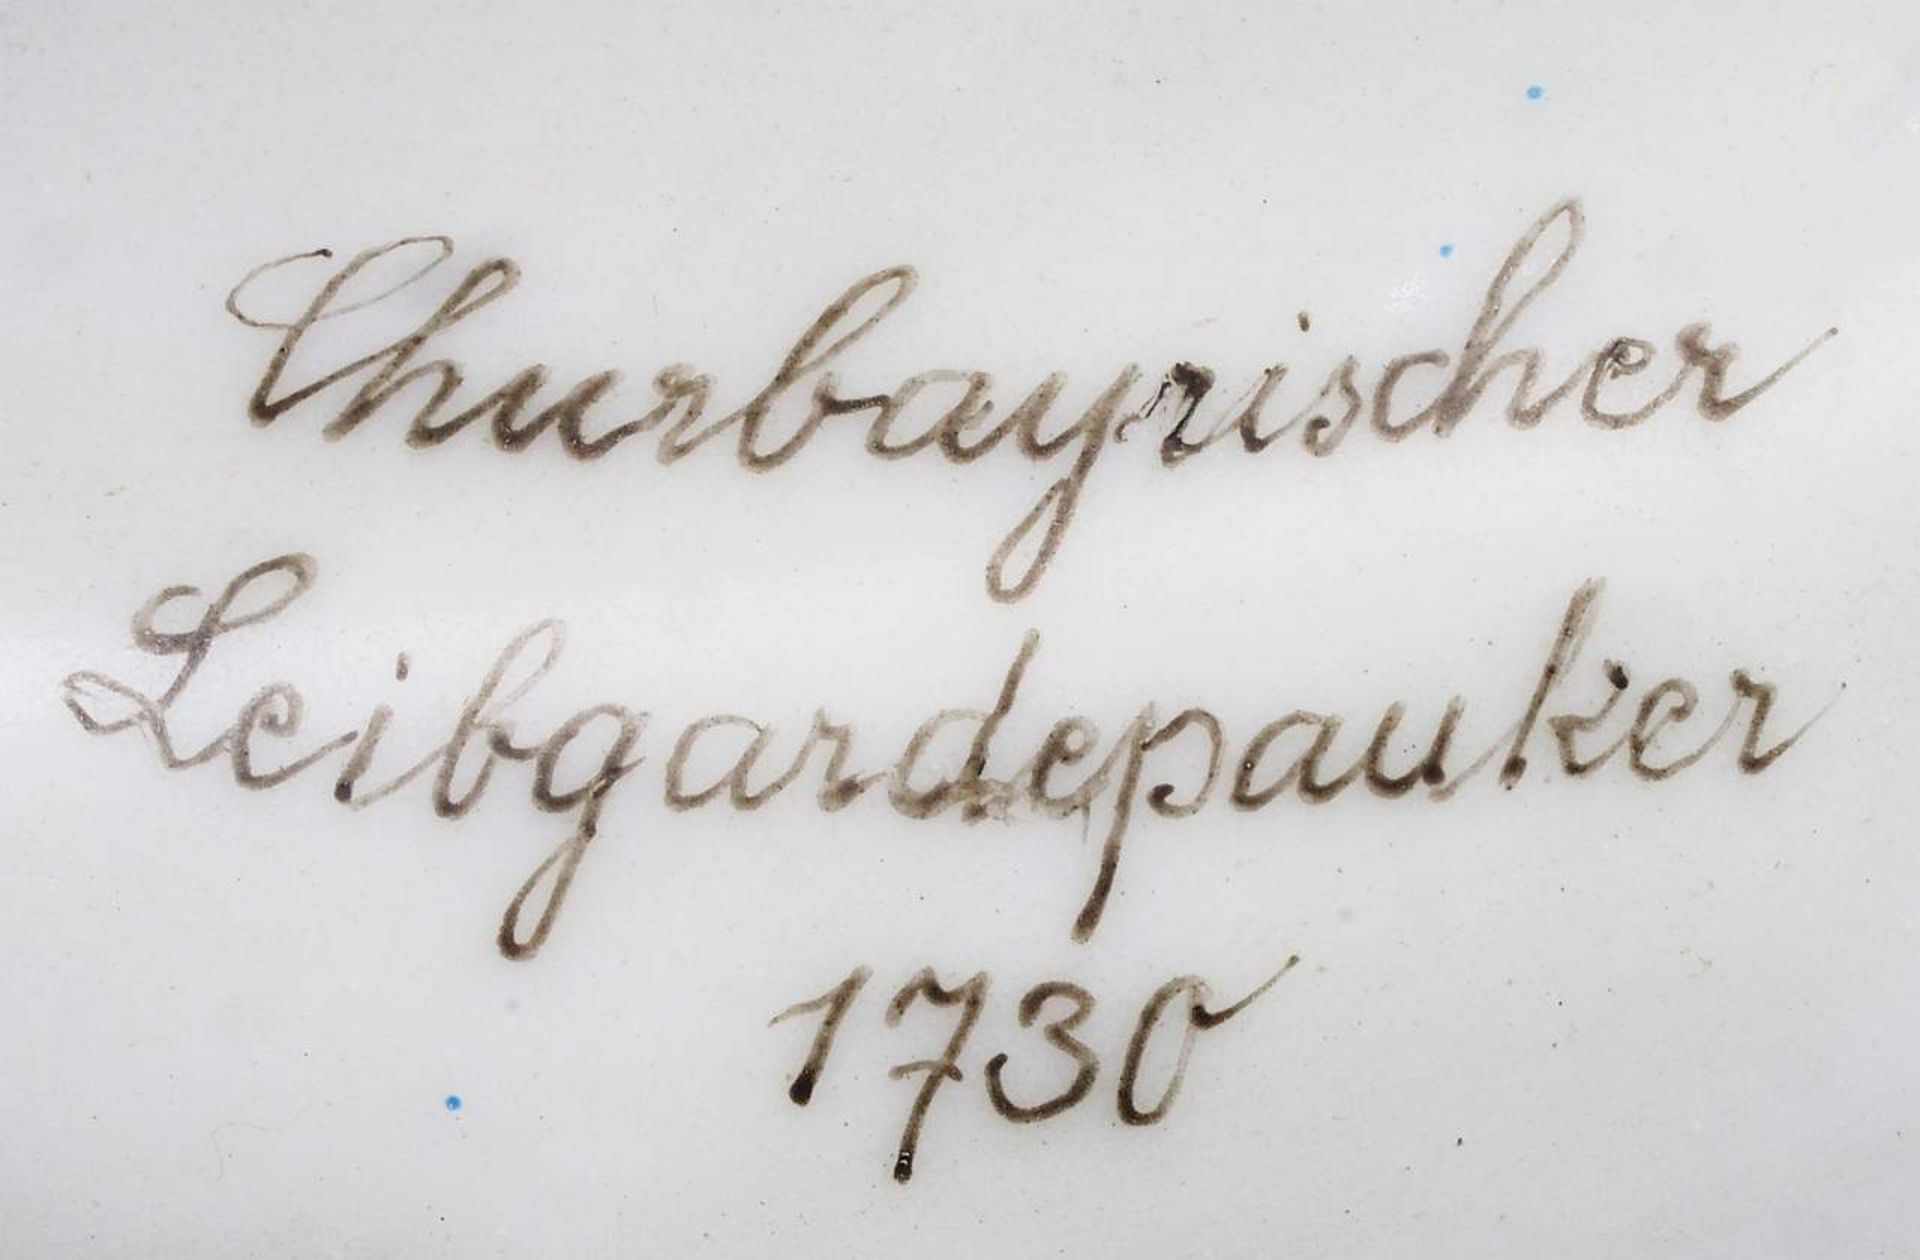 Churbayrischer
Leibgardepauker
1730